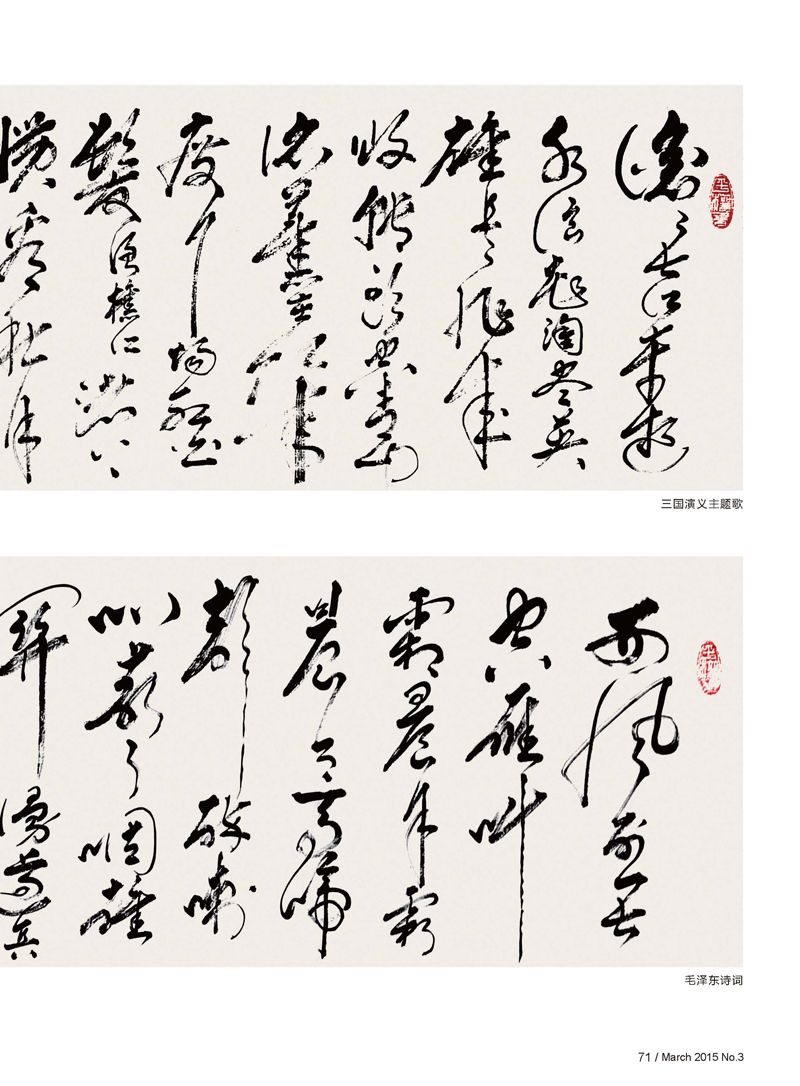 滚々长江东逝
水浪花淘尽英
雄是非成
败转头空青山
依旧在几
度夕阳红白
髮渔樵江渚上
惯看秋月
三国演义主题歌
西风烈长
空雁叫
霜晨月霜
晨月马蹄
声碎喇
叭声咽雄
关漫道真
毛泽东诗词
71 / March 2015 No.3